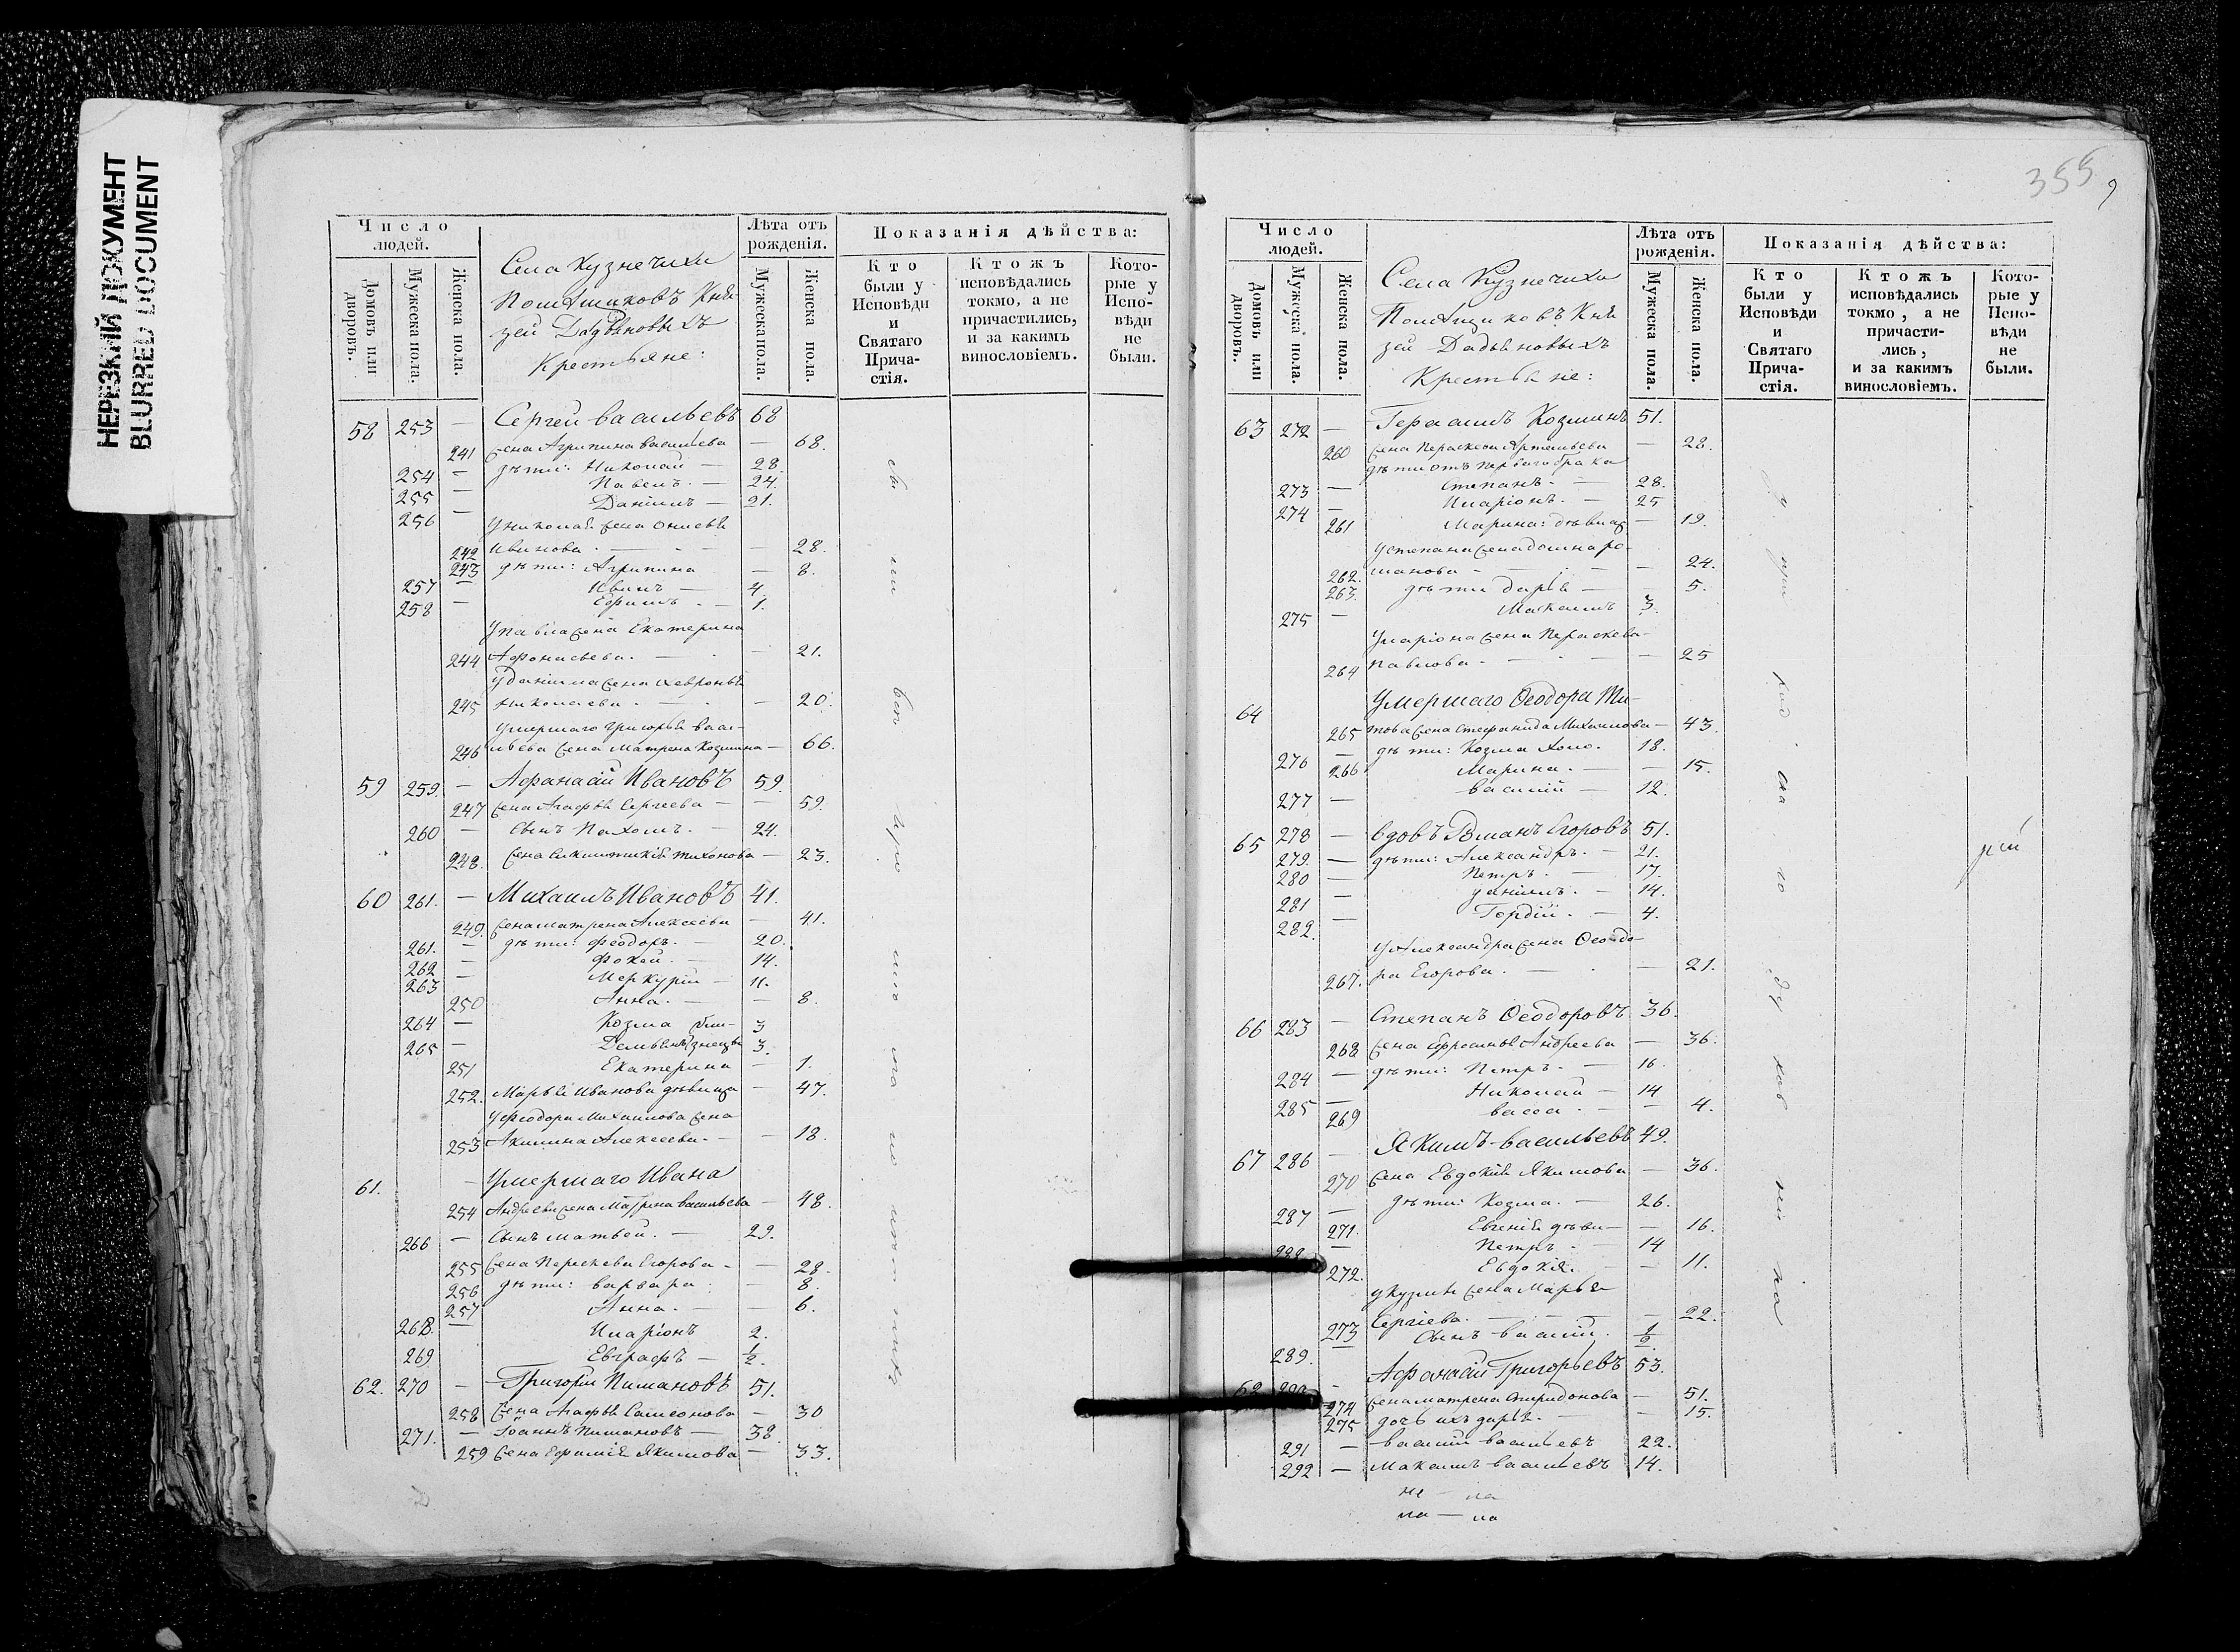 НЕРЕЗКИЙ ДОКУМЕНТ
BLURRED DOCUMENT
Число людей.
Домовъ или дворовъ.
Мужеска пола.
Женска пола.
Села Кузнечихи
Помѣщиковъ Кня-
зей Дадьяновыхъ
Крестьяне:
Лѣта отъ рожденія.
Мужеска пола.
Женска пола.
Показанія дѣйства:
Кто были у Исповѣди и Святаго Причастія.
Ктожъ исповѣдались токмо, а не причастились, и за какимъ винословіемъ.
Которые у Исповѣди не были.
58 253 — Сергей Васильевъ 68
241 жена Агрипина Васильева — 68.
254 — дѣти: Николай — 28.
255 — Павелъ. — 24.
256 — Даніилъ — 21.
У Николая жена
242 Иванова — 28.
243 дѣти: Агрипина — 8.
257 — Иванъ — 4.
258 — Ефимъ — 1.
У Павла жена Екатерина
244 Афонасьева. — 21.
У Даніила жена Хавронья
245 Николаева. — 20.
Умершаго Григорья Васи-
246 льева жена Матрена Козмина — 66.
59 259. — Афанасій Ивановъ 59.
247 жена Агафья Сергеева — 59.
260 — сынъ Пахомъ. — 24.
248. жена Тихонова — 23.
60 261. — Михаилъ Ивановъ 41.
249. жена Матрена Алексеева — 41.
261. — дѣти: Феодоръ. — 20.
262 — Фокей. — 14.
263 — Меркурій — 11.
250 Анна. — 8.
264 — Козма близ- 3
265 — Демьянъ знецы 3.
251 Екатерина — 1.
252. Марья Иванова дѣвица — 47.
У Феодора Михайлова жена
253 Акилина Алексеева. — 18.
61. — Умершаго Ивана
254 Андреева жена Матрена Васильева — 48.
266 — Сынъ Матвей. — 29.
255 жена Параскева Егорова — 28.
256 дѣти: Варвара. — 8.
257 Анна. — 6.
268. — Иларіонъ 2.
269 Евграфъ — 1/2.
62. 270 — Григорій Пимановъ 51.
258 жена Агафья Самсонова — 30
271. — Іоаннъ Пимановъ — 38.
259 жена Ефимія Якимова — 33.
355
9
Число людей.
Домовъ или дворовъ.
Мужеска пола.
Женска пола.
Села Кузнечихи
Помѣщиковъ Кня-
зей Дадьяновыхъ
Крестьяне:
Лѣта отъ рожденія.
Мужеска пола.
Женска пола.
Показанія дѣйства:
Кто были у Исповѣди и Святаго Причастія.
Ктожъ исповѣдались токмо, а не причастились, и за какимъ винословіемъ.
Которые у Исповѣди не были.
63 272 — Герасимъ Козминъ 51.
260 жена Параскева Артемьева — 28.
дѣти отъ перваго брака
273 — Степанъ — 28.
274 — Иларіонъ. — 25
261 Марина: дѣвица — 19.
У Степана жена Домна Ро-
262. манова — 24.
263. дѣти Дарья — 5.
275 — Максимъ 3.
У Иларіона жена Параскева
264 Павлова — 25
64 Умершаго Ѳеодора Ти-
265 това жена Стефанида Михайлова — 43.
276 — дѣти: Козма холо. 18.
266 Марина. — 15.
277 — Василій — 12.
65 278 — Вдовъ Романъ Егоровъ 51.
279. — дѣти: Александръ. — 21.
280 — Петръ. — 17.
281 — Даніилъ. — 14.
282. — Гордій. — 4.
У Александра жена Ѳеодо-
267. ра Егорова. — 21.
66 283 — Степанъ Ѳеодоровъ 36.
268 жена Ефросинья Андреева — 36.
284 — дѣти: Петръ. — 16.
285 — Николай — 14
269 Васса. — 4.
67 286 — Якимъ Васильевъ 49.
270 жена Евдокія Якимова — 36.
287 — дѣти: Козма. — 26.
271. Евгенія дѣви — 16.
288 — Петръ. — 14
272. Евдокія. — 11.
У Кузмы жена Марья
273 Сергіева. — 22.
289. — Сынъ Василій. 1/2
Афанасій Григорьевъ 53.
274 жена Матрена Спиридонова — 51.
275 дочь ихъ Дарья. — 15.
291 — Василій Васильевъ 22.
292 — Максимъ Васильевъ 14.